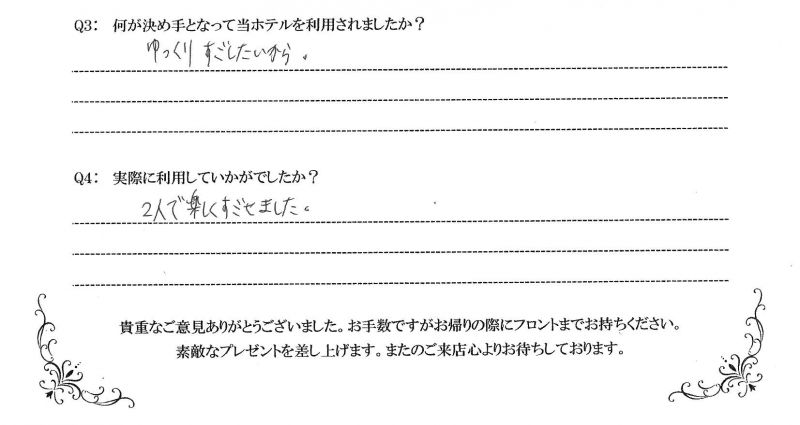 Q3: 何が決め手となって当ホテルを利用されましたか？
ゆっくりすごしたいから。
Q4: 実際に利用していかがでしたか？
2人で楽しくすごせました。
貴重なご意見ありがとうございました。お手数ですがお帰りの際にフロントまでお持ちください。
素敵なプレゼントを差し上げます。またのご来店心よりお待ちしております。